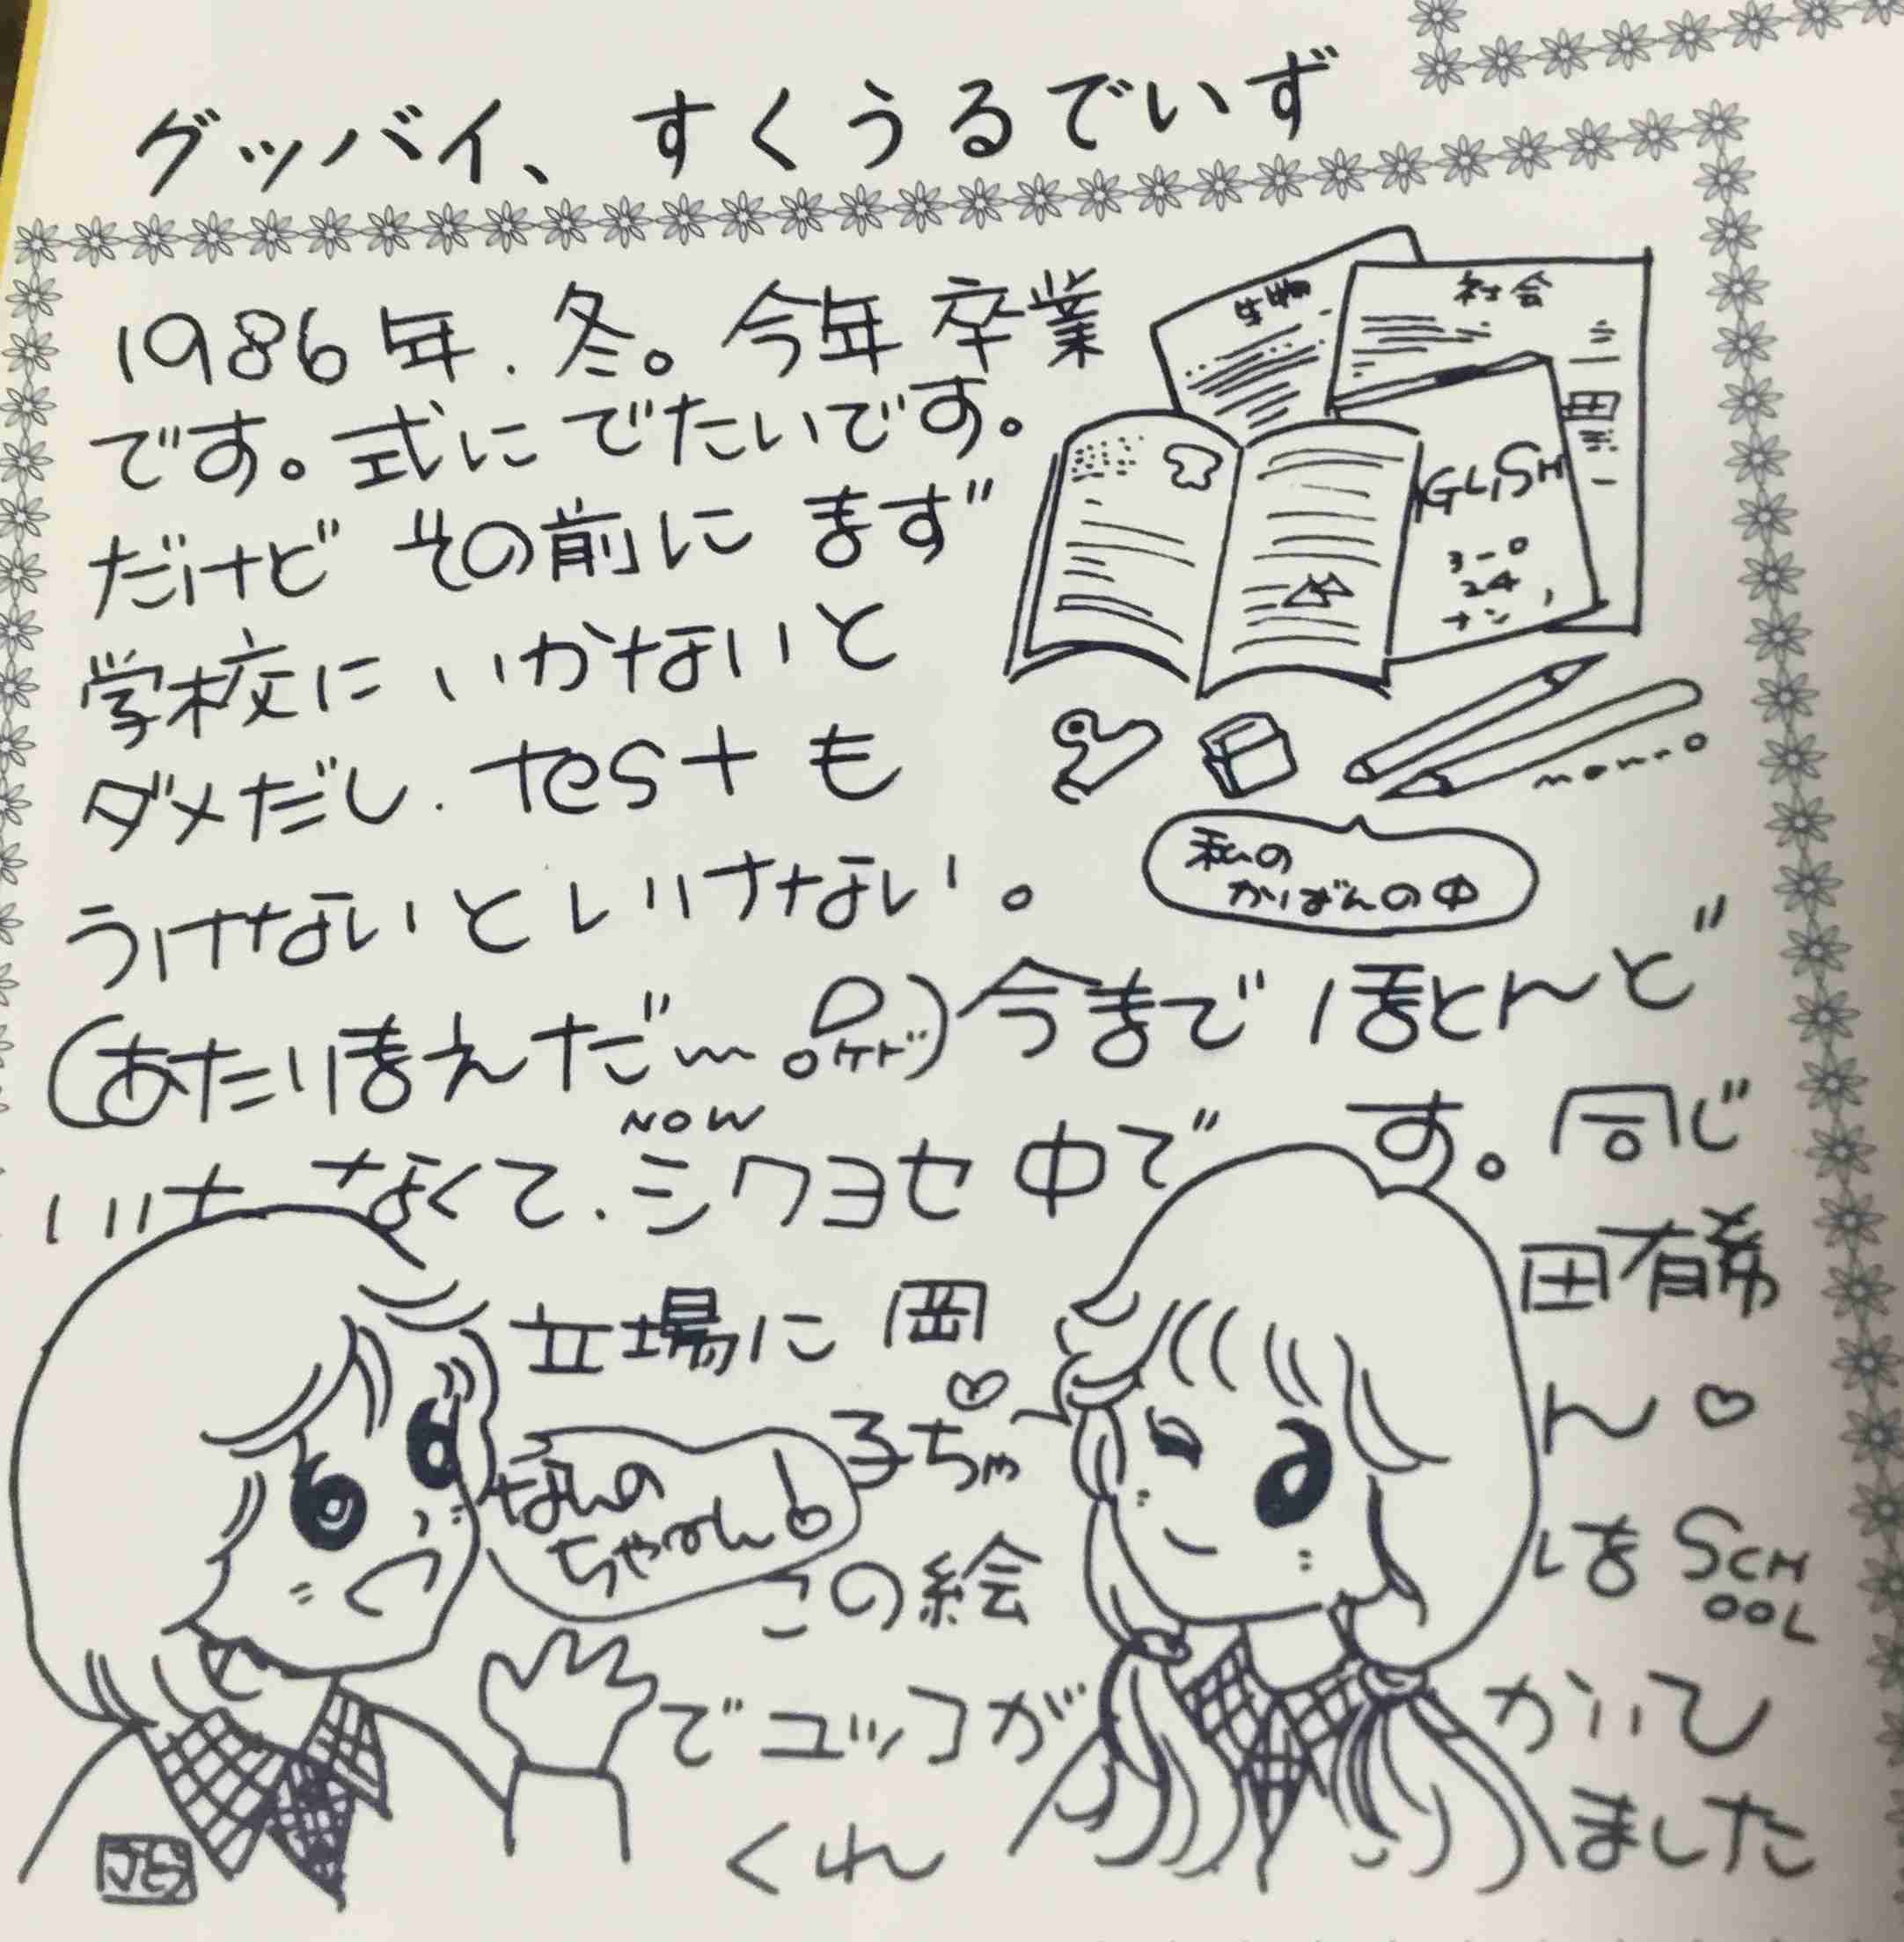 グッバイ、すくうるでいず
1986年.冬。今年卒業
です。式にでたいです。
だけどその前にまず
学校にいかないと
ダメだし.testも
うけないといけない。
(あたりまえだ〜 ケド)今までほとんど
いけなくて.シワヨセ中です。同じ
NOW
立場に岡田有希
子ちゃん♡
この絵はSCHOOL
でユッコがかいて
くれました
生物
社会
GLISH
3-0
24
ナン
私の
かばんの中
mono
なんの
ちゃーん!